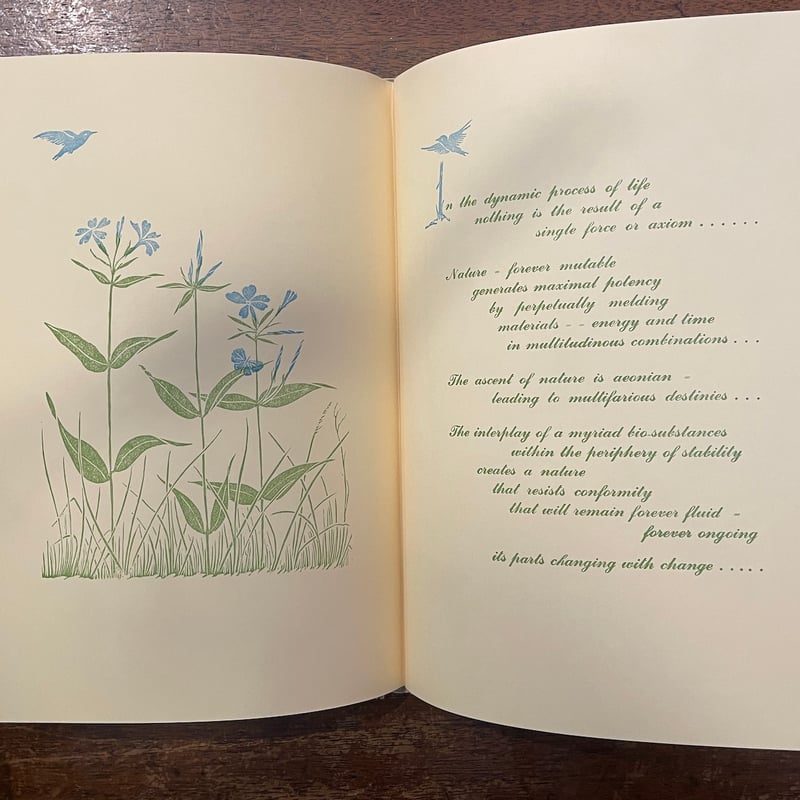 In the dynamic process of life
nothing is the result of a
single force or axiom . . . . . .
Nature - forever mutable
generates maximal potency
by perpetually melding
materials - - energy and time
in multitudinous combinations . . .
The ascent of nature is aeonian -
leading to multifarious destinies . . .
The interplay of a myriad bio-substances
within the periphery of stability
creates a nature
that resists conformity
that will remain forever fluid -
forever ongoing
its parts changing with change . . . . .